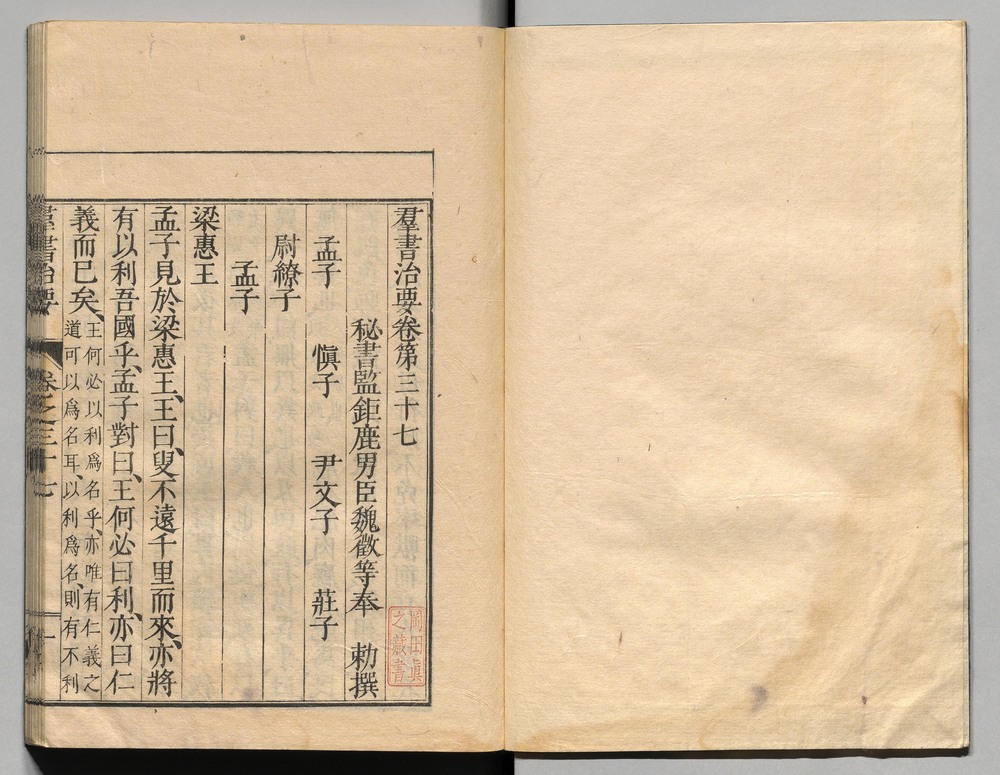 羣書治要卷第三十七
秘書監鉅鹿男臣魏徵等奉 勅撰
孟子 愼子 尹文子 莊子
尉繚子
孟子
梁惠王
孟子見於梁惠王、王曰、叟不遠千里而來、亦將
有以利吾國乎、孟子對曰、王何必曰利、亦曰仁
義而已矣、王何必以利爲名乎、亦唯有仁義之
道可以爲名耳、以利爲名、則有不利
羣書治要 卷之三十七 一
岡田眞
之藏書